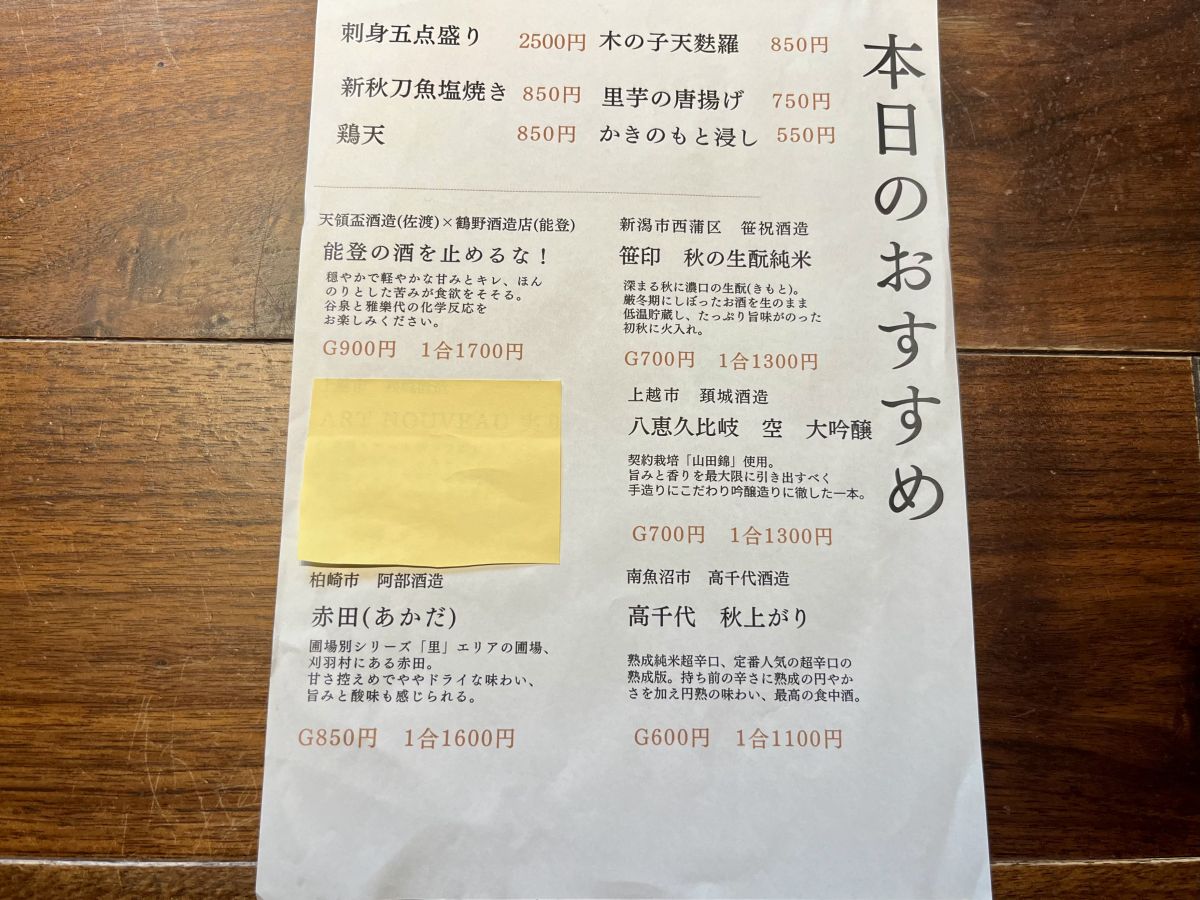 本日のおすすめ
刺身五点盛り 2500円
新秋刀魚塩焼き 850円
鶏天 850円
木の子天麩羅 850円
里芋の唐揚げ 750円
かきのもと浸し 550円
天領盃酒造(佐渡)×鶴野酒造店(能登)
能登の酒を止めるな！
穏やかで軽やかな甘みとキレ、ほん
のりとした苦みが食欲をそそる。
谷泉と雅樂代の化学反応を
お楽しみください。
G900円 1合1700円
ART NOUVEAU
柏崎市 阿部酒造
赤田(あかだ)
圃場別シリーズ「里」エリアの圃場、
刈羽村にある赤田。
甘さ控えめでややドライな味わい、
旨みと酸味も感じられる。
G850円 1合1600円
新潟市西蒲区 笹祝酒造
笹印 秋の生酛純米
深まる秋に濃口の生酛(きもと)。
厳冬期にしぼったお酒を生のまま
低温貯蔵し、たっぷり旨味がのった
初秋に火入れ。
G700円 1合1300円
上越市 頚城酒造
八恵久比岐 空 大吟醸
契約栽培「山田錦」使用。
旨みと香りを最大限に引き出すべく
手造りにこだわり吟醸造りに徹した一本。
G700円 1合1300円
南魚沼市 高千代酒造
高千代 秋上がり
熟成純米超辛口、定番人気の超辛口の
熟成版。持ち前の辛さに熟成の円やか
さを加え円熟の味わい、最高の食中酒。
G600円 1合1100円